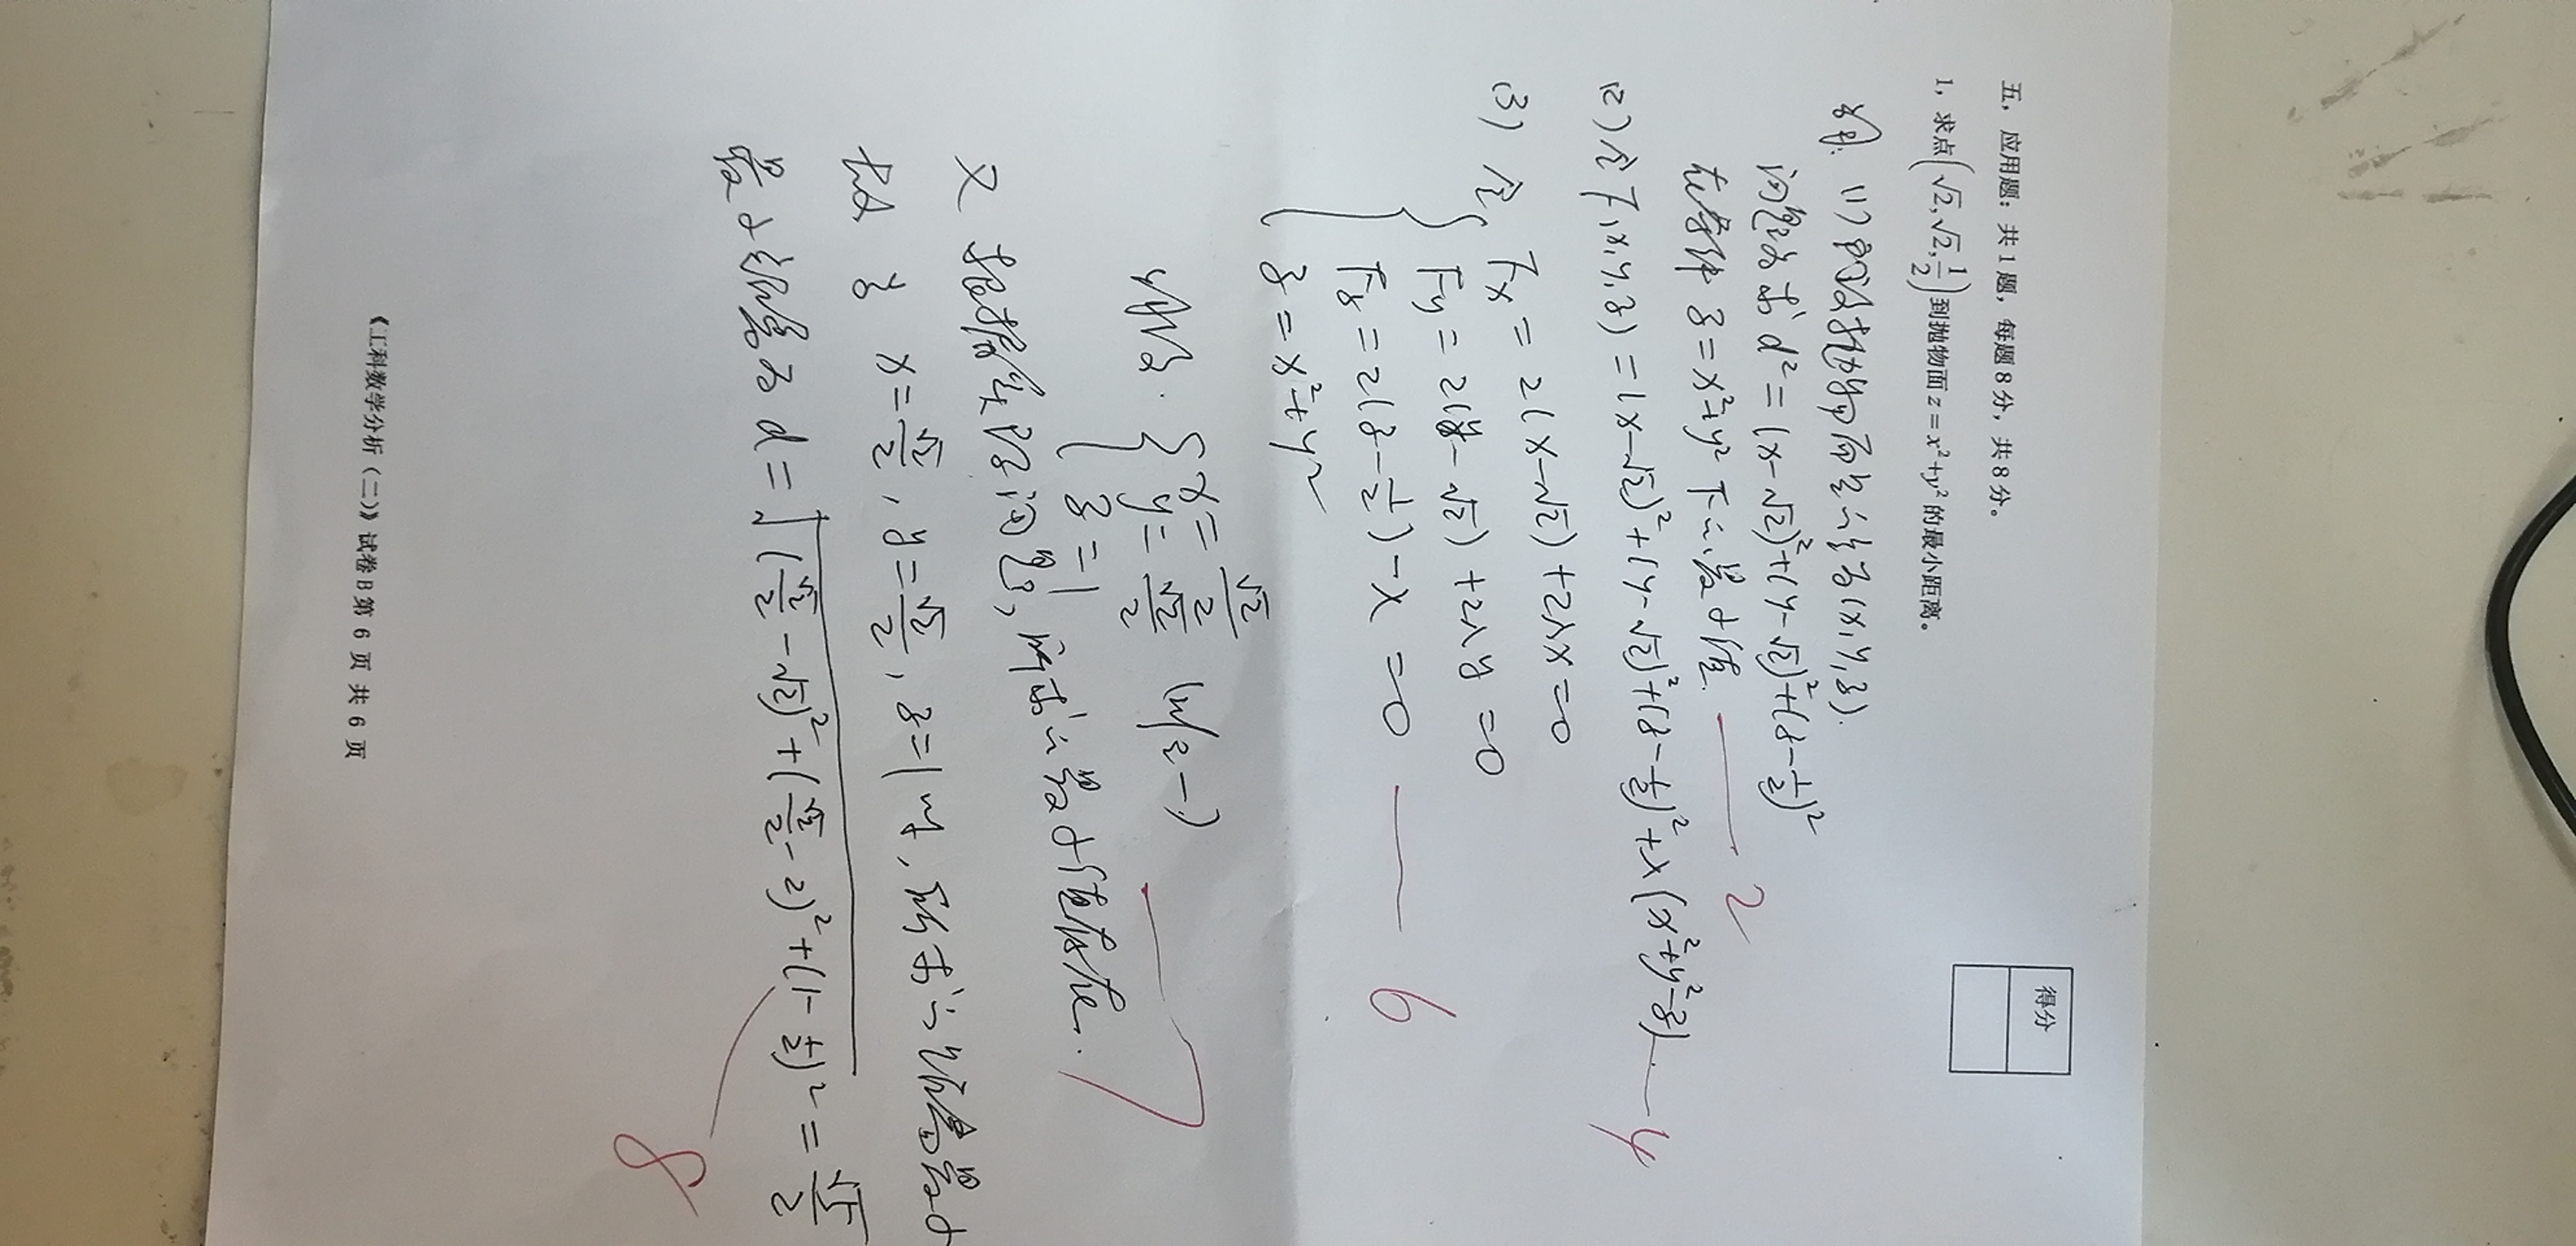 五，应用题：共1题，每题8分，共8分。
得分
1，求点(√2,√2,1/2)到抛物面z=x²+y²的最小距离。
解: (1) 设抛物面上的点为(x,y,z).
问题为求 d²=(x-√2)²+(y-√2)²+(z-1/2)²
在条件 z=x²+y² 下的最小值. 2
(2) 令 F(x,y,z)=(x-√2)²+(y-√2)²+(z-1/2)²+λ(x²+y²-z). 4
(3) 令
Fx=2(x-√2)+2λx=0
Fy=2(y-√2)+2λy=0
Fz=2(z-1/2)-λ=0 6
z=x²+y²
解得. { x=√2/2
y=√2/2 (唯一)
z=1 7
又 根据实际问题, 所求的最小值存在.
故 当 x=√2/2, y=√2/2, z=1时, 所求的距离最小
最小距离为 d=√((√2/2-√2)²+(√2/2-2)²+(1-1/2)²)=√5/2
8
《工科数学分析（二）》试卷B第 6 页 共 6 页